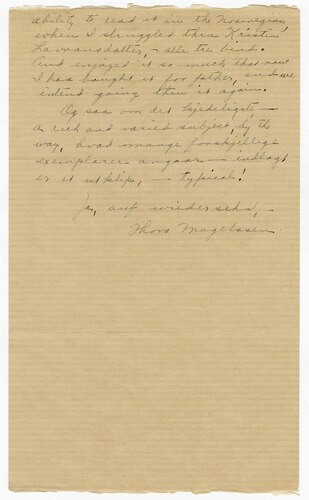 ability to read it in the Norwegian
when I struggled thru Kristin
Lavransdatter, - alle tre bind.
And enjoyed it so much that now
I hav bought it for father, and we
intend going thru it again.
Og saa om det kjedeligste -
a rich and varied subject, by the
way, hvad mange forskjellige
exemplarer angaar - indlagt
er et utklip, - typical!
Ja, auf wiedersehn, -
Thora Magelssen.